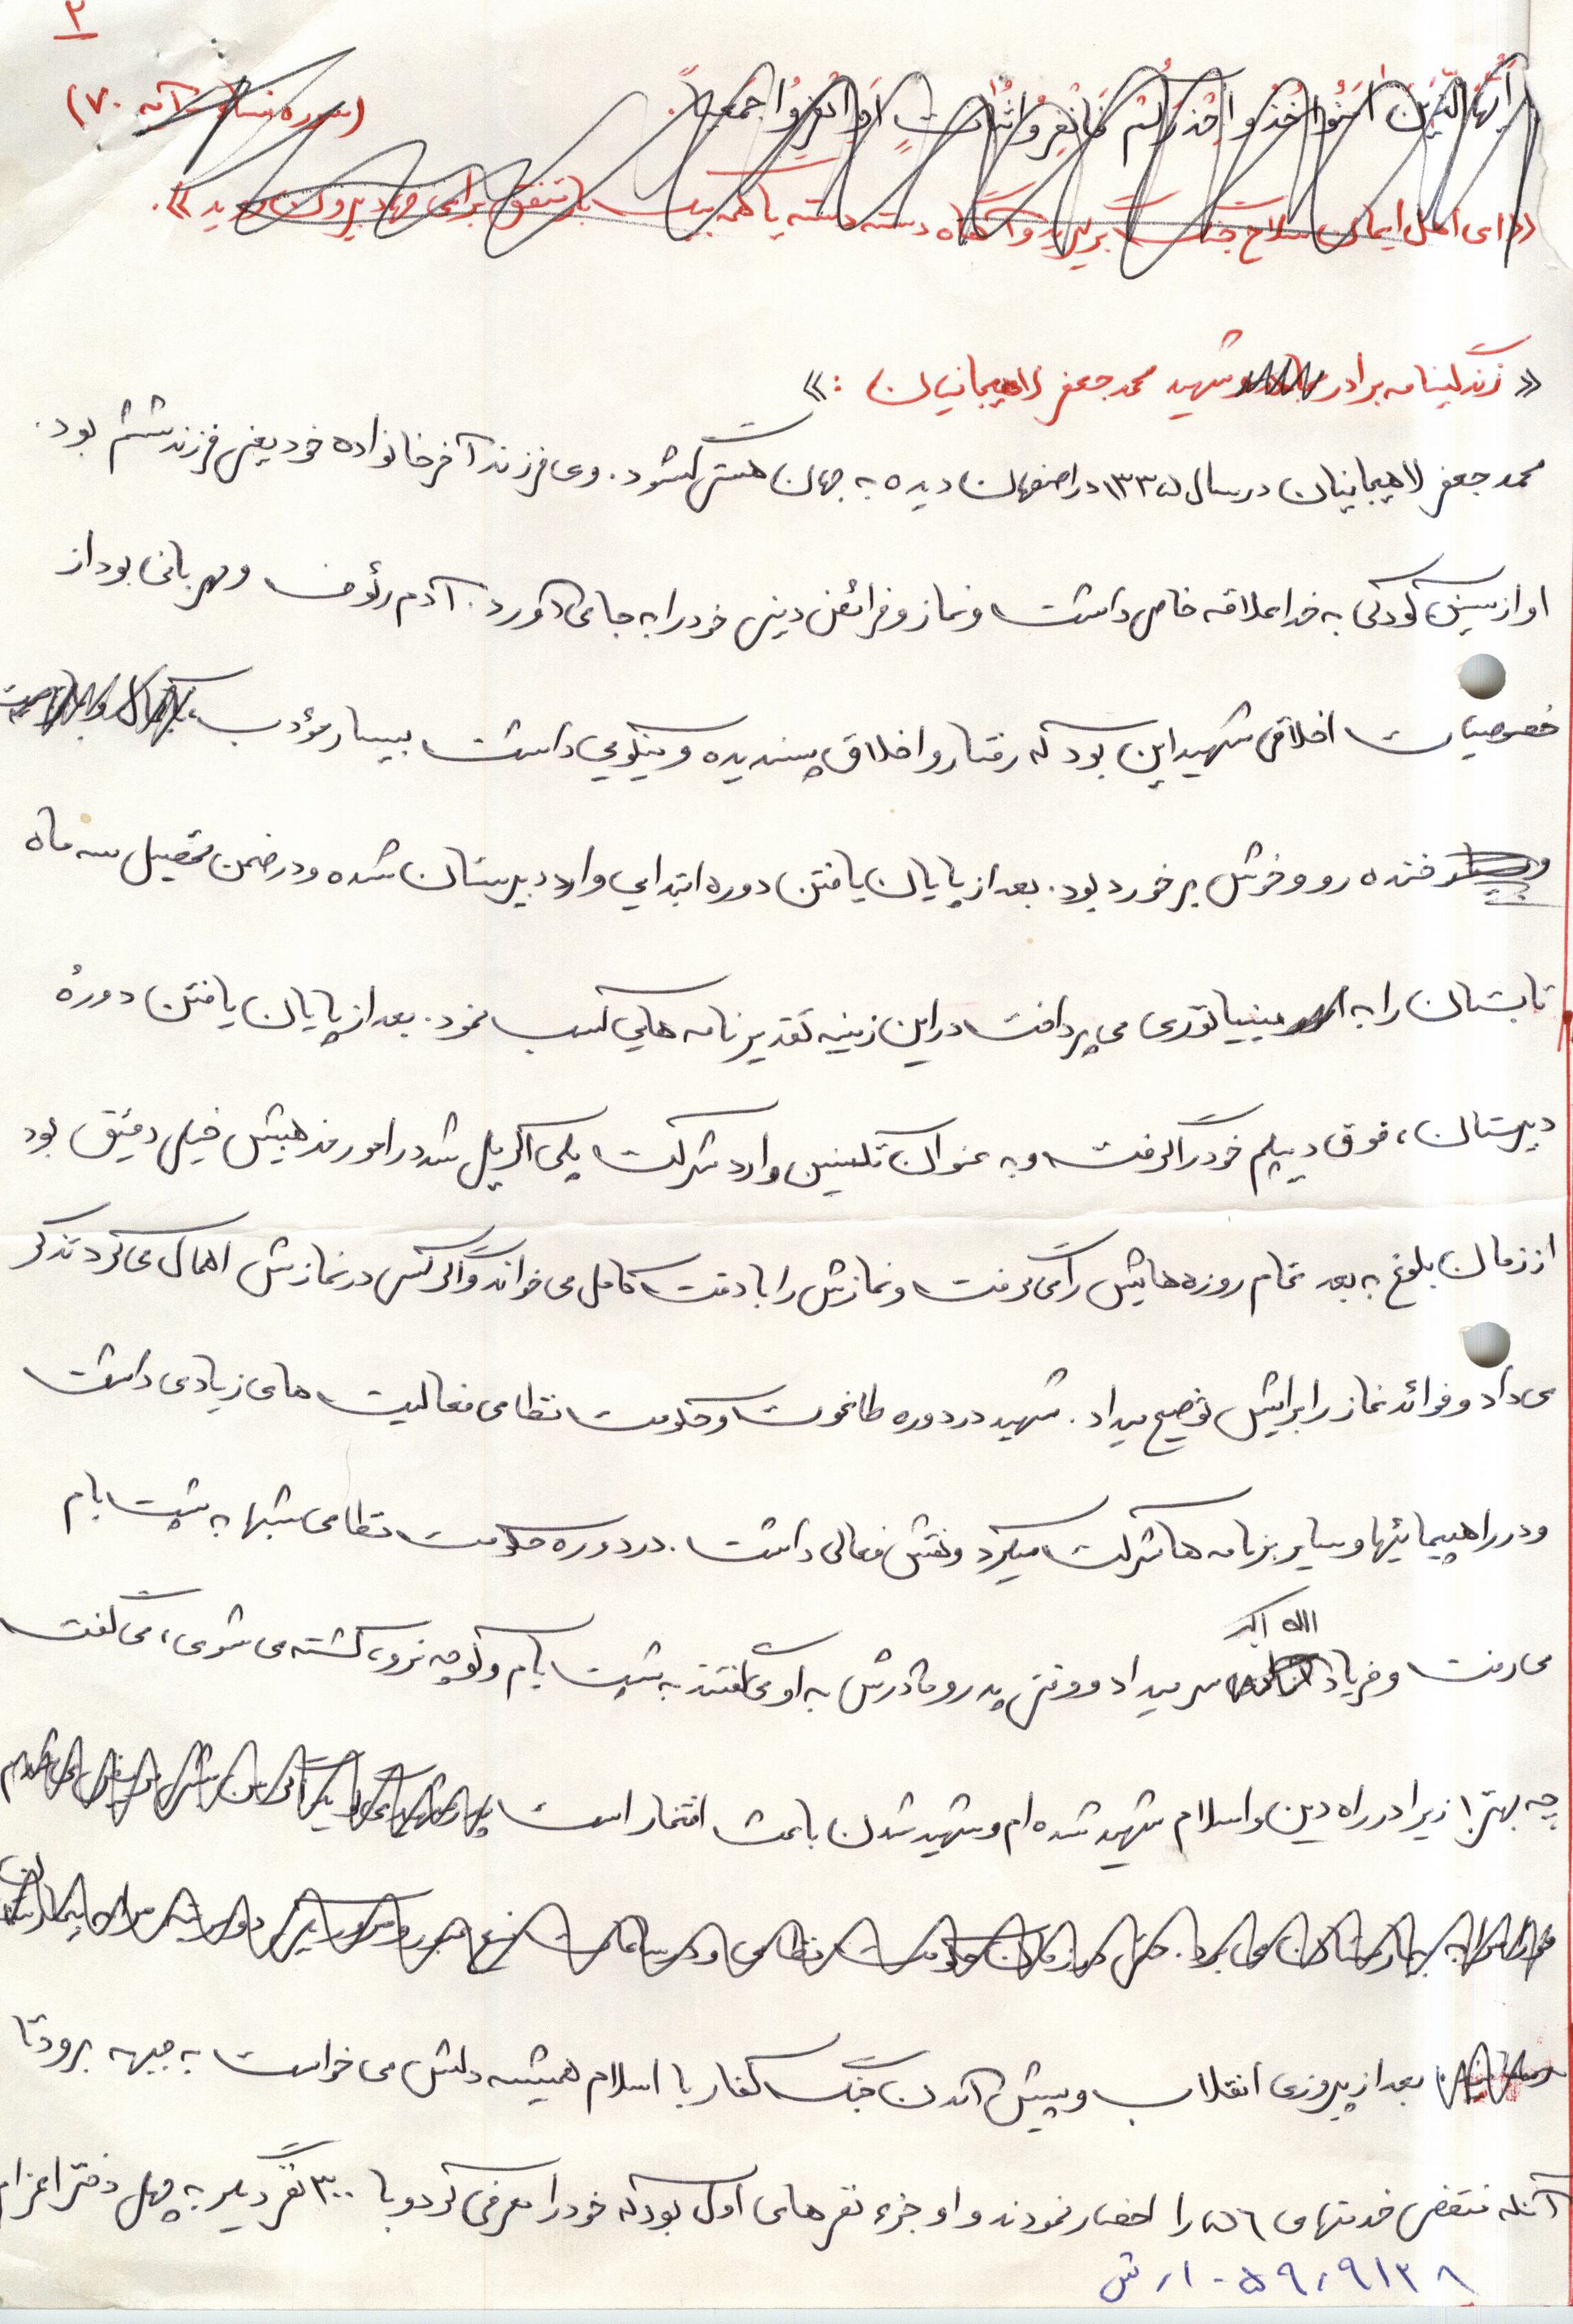 ۲
ایهاالذین امنوا خذوا حذرکم فانفروا ثبات اوانفروا جمیعاً. (سوره نساء آیه ۷۰)
«ای اهل ایمان سلاح جنگ برگیرید و آنگاه دسته دسته یا همه بیک بار متفق برای جهاد بیرون روید».
«زندگینامه برادر شهید محمد جعفر لاهیجانیان :»
محمد جعفر لاهیجانیان در سال ۱۳۳۵ در اصفهان دیده به جهان هستی گشود. وی فرزند آخر خانواده خود یعنی فرزند ششم بود.
او از سنین کودکی به خدا علاقه خاص داشت و نماز و فرائض دینی خود را به جا می‌آورد. آدم رئوف و مهربانی بود از
خصوصیات اخلاقی شهید این بود که رفتار و اخلاق پسندیده و نیکویی داشت بسیار مؤدب،
خنده رو و خوش برخورد بود. بعد از پایان یافتن دوره ابتدایی وارد دبیرستان شده و در ضمن تحصیل سه ماه
تابستان را به مینیاتوری می پرداخت در این زمینه تقدیر نامه هایی کسب نمود. بعد از پایان یافتن دورهٔ
دبیرستان، فوق دیپلم خود را گرفت و به عنوان تکنسین وارد شرکت پلی اکریل شد در امور مذهبیش خیلی دقیق بود
از زمان بلوغ به بعد تمام روزه هایش را می گرفت و نمازش را با دقت کامل می خواند و اگر کسی در نمازش اهمال می کرد تذکر
می داد و فوائد نماز را برایش توضیح میداد. شهید در دوره طاغوت و حکومت نظامی فعالیت های زیادی داشت
و در راهپیمائیها و سایر برنامه ها شرکت میکرد و نقش فعالی داشت. در دوره حکومت نظامی شبها به پشت بام
می رفت و فریاد الله اکبر سر میداد و وقتی پدر و مادرش به او می گفتند به پشت بام و کوچه نرو، کشته می شوی، می گفت
چه بهتر! زیرا در راه دین و اسلام شهید شده ام و شهید شدن باعث افتخار است
به بیمارستان می برد. حتی در زمان حکومت نظامی و در ساعات منع عبور و مرور
بعد از پیروزی انقلاب و پیش آمدن جنگ کفار با اسلام همیشه دلش می خواست به جبهه برود تا
آنکه منقضی خدمتهای ۵۶ را احضار نمودند و او جزء نفرهای اول بود که خود را معرفی کرد و با ۳۰۰ نفر دیگر به محل دفتر اعزام